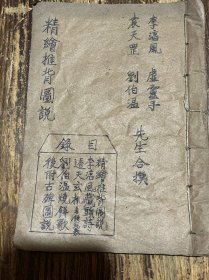 李淳風 虛靈子
袁天罡 劉伯溫
先生合撰
精繪推背圖説
目錄
精繪推背圖説
李淳風藏頭詩
透天玄机
劉伯溫燒餅歌
後附古碑圖説